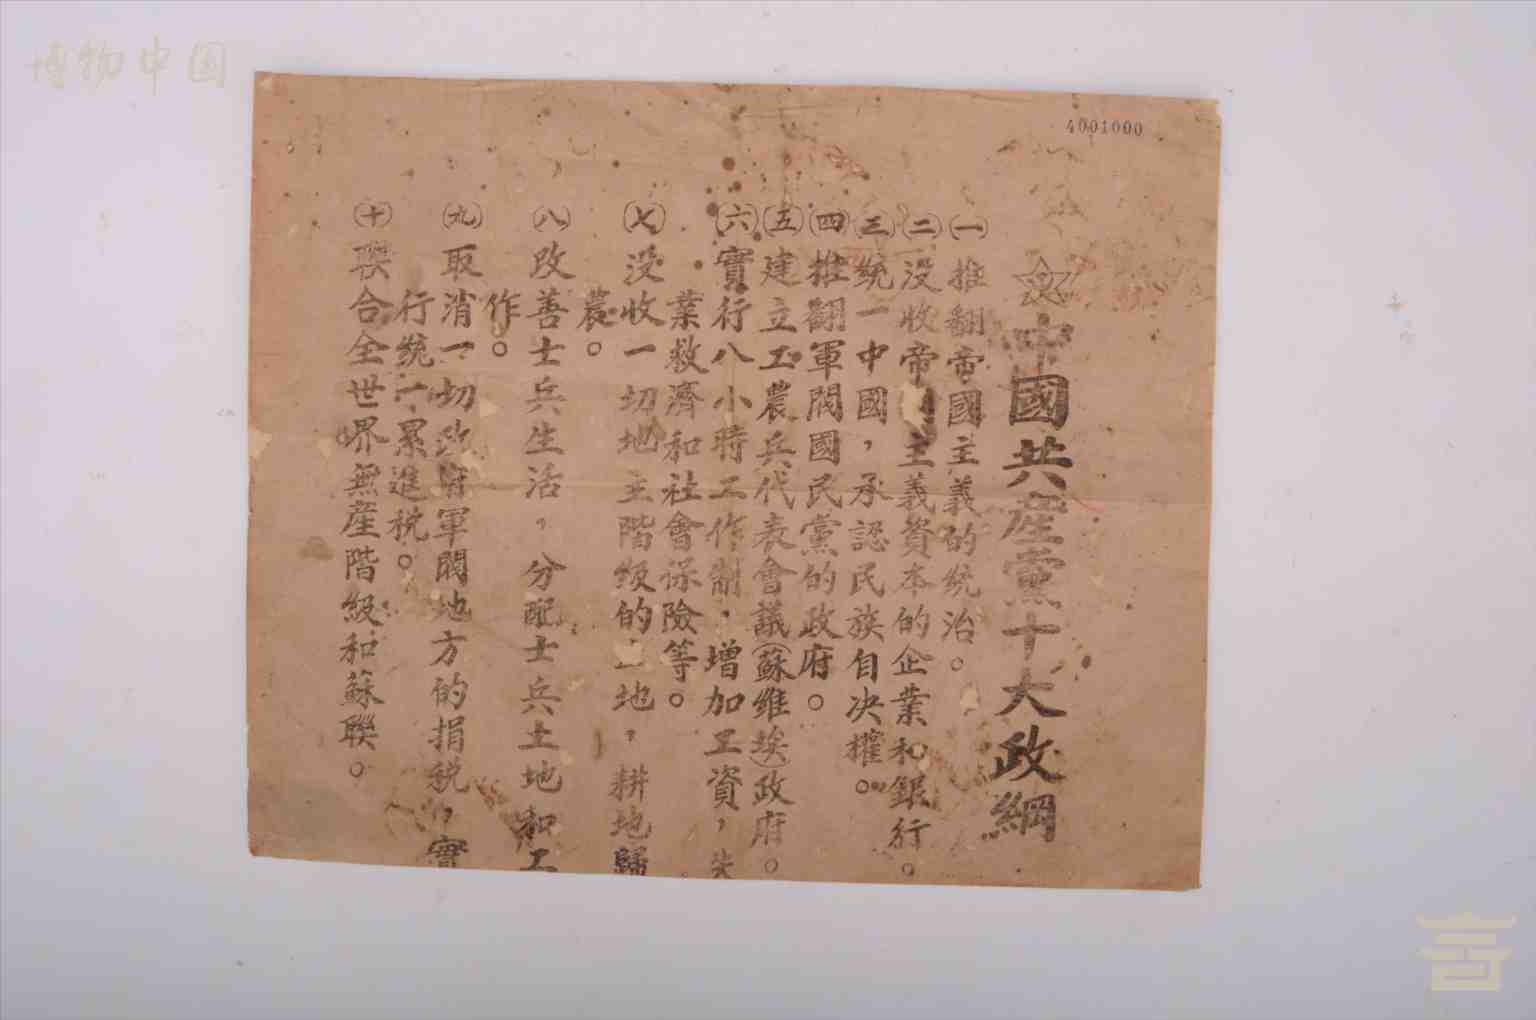 博物中国
4001000
中國共産黨十大政綱
㈠推翻帝國主義的統治。
㈡没收帝國主義資本的企業和銀行。
㈢統一中國，承認民族自决權。
㈣推翻軍閥國民黨的政府。
㈤建立工農兵代表會議(蘇維埃)政府。
㈥實行八小時工作制，增加工資，失
業救濟和社會保險等。
㈦没收一切地主階級的土地，耕地歸
農。
㈧改善士兵生活，分配士兵土地和工
作。
㈨取消一切政府軍閥地方的捐税，實
行統一累進税。
㈩聯合全世界無産階級和蘇聯。